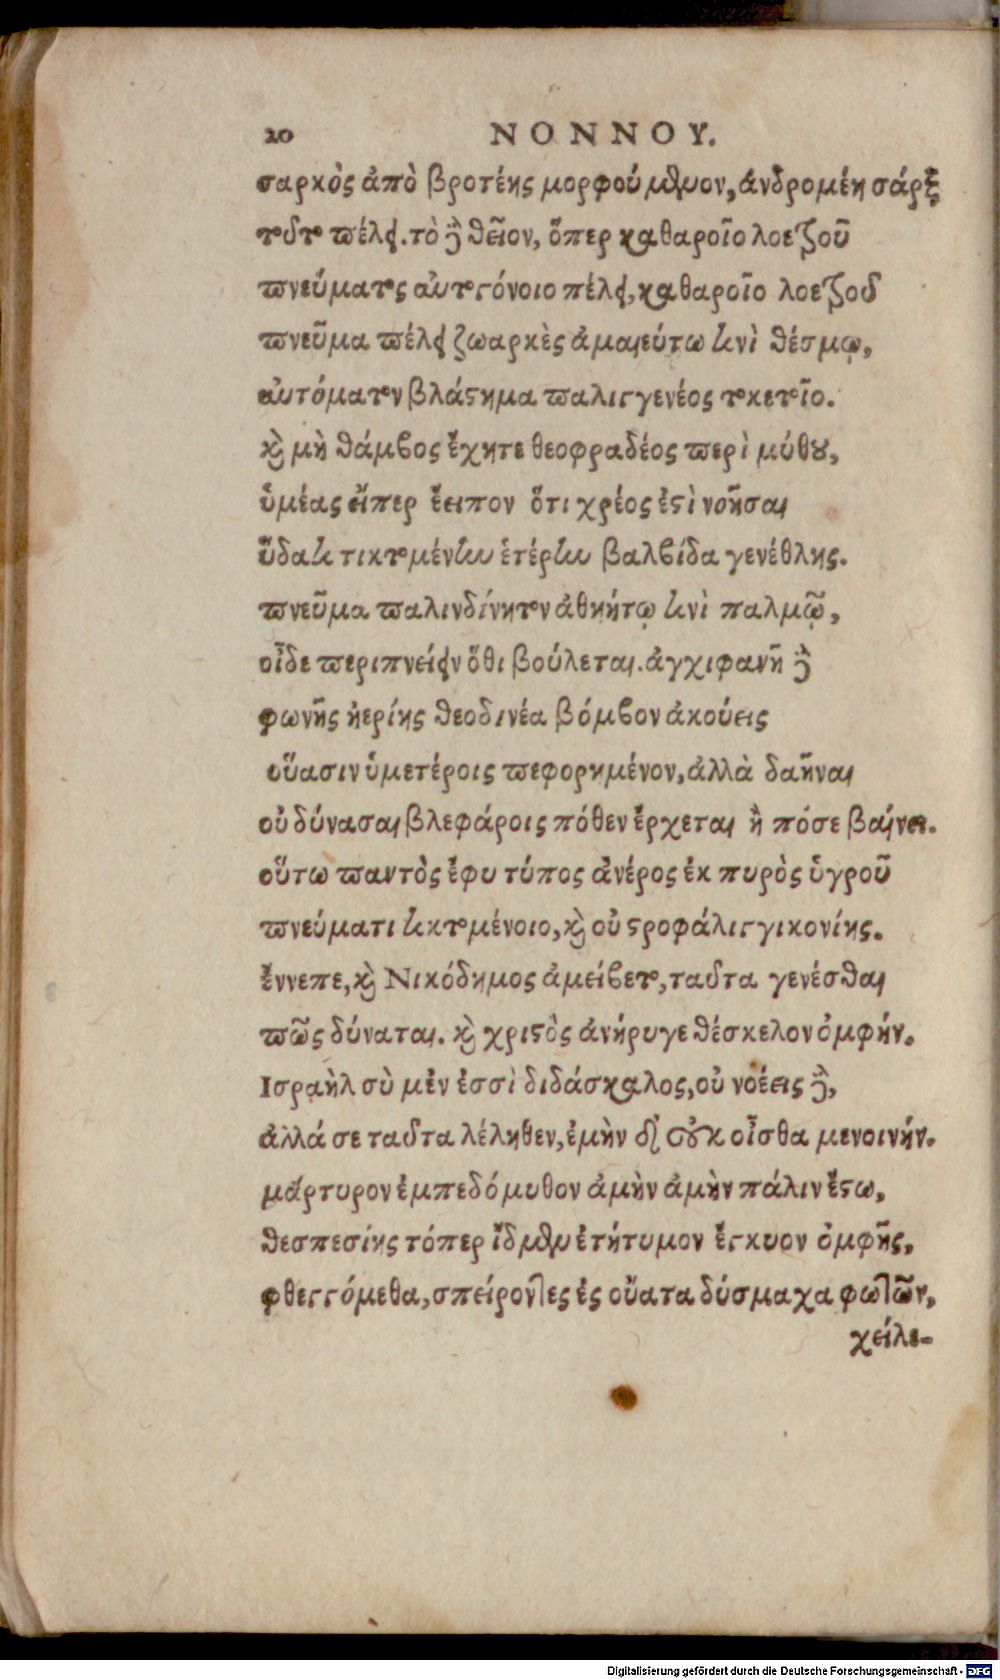 20 ΝΟΝΝΟΥ.
σαρκὸς ἀπὸ βροτέης μορφούμενον, ἀνδρομέη σάρξ
τοῦτο πέλει. τὸ δὲ θεῖον, ὅπερ καθαροῖο λοετροῦ
πνεύματος αὐτογόνοιο πέλει, καθαροῖο λοετροῦ
πνεῦμα πέλει ζωαρκὲς ἀμαιεύτῳ ἐνὶ θέσμῳ,
αὐτόματον βλάστημα παλιγγενέος τοκετοῖο.
καὶ μὴ θάμβος ἔχητε θεοφραδέος περὶ μύθου,
ὑμέας εἴπερ ἔειπον ὅτι χρέος ἐστὶ νοῆσαι
ὕδατι τικτομένην ἑτέρην βαλβίδα γενέθλης.
πνεῦμα παλινδίνητον ἀθηήτῳ ἐνὶ παλμῷ,
οἶδε περιπνείειν ὅθι βούλεται. ἀγχιφανῆ δὲ
φωνῆς ἠερίης θεοδινέα βόμβον ἀκούεις
οὔασιν ὑμετέροις πεφορημένον, ἀλλὰ δαῆναι
οὐ δύνασαι βλεφάροις πόθεν ἔρχεται ἢ πόσε βαίνει.
οὕτω παντὸς ἔφυ τύπος ἀνέρος ἐκ πυρὸς ὑγροῦ
πνεύματι τικτομένοιο, καὶ οὐ στροφάλιγγι κονίης.
ἔννεπε, καὶ Νικόδημος ἀμείβετο, ταῦτα γενέσθαι
πῶς δύναται. καὶ χριστὸς ἀνήρυγε θέσκελον ὀμφήν.
Ισραὴλ σὺ μὲν ἐσσὶ διδάσκαλος, οὐ νοέεις δὲ,
ἀλλά σε ταῦτα λέληθεν, ἐμὴν δ' οὐκ οἶσθα μενοινήν.
μάρτυρον ἐμπεδόμυθον ἀμὴν ἀμὴν πάλιν ἔστω,
θεσπεσίης τόπερ ἴδμεν ἐτήτυμον ἔγκυον ὀμφῆς,
φθεγγόμεθα, σπείροντες ἐς οὔατα δύσμαχα φωτῶν,
χείλε-
Digitalisierung gefördert durch die Deutsche Forschungsgemeinschaft - DFG